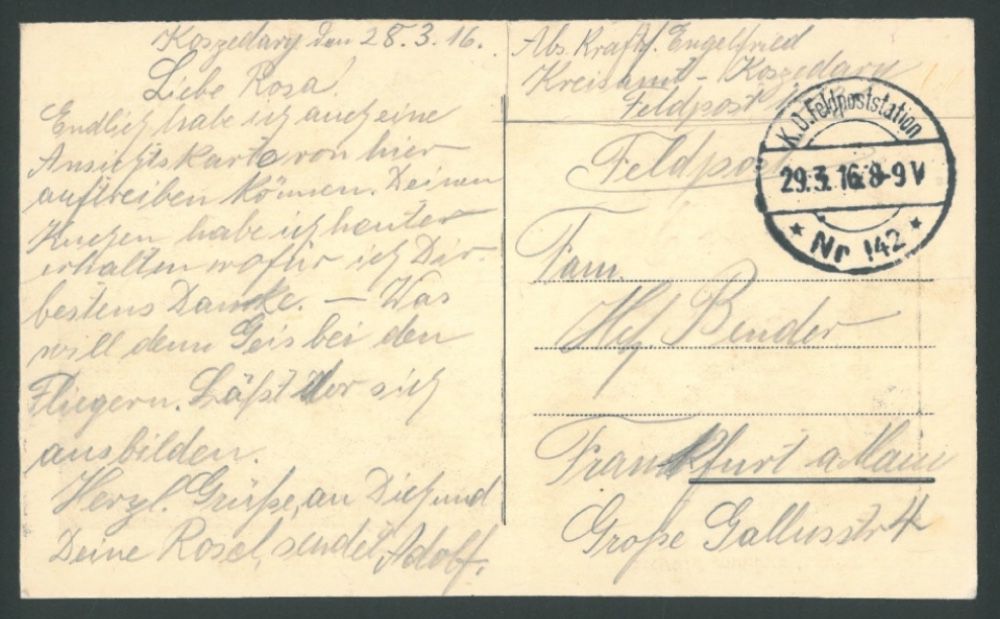 Koszedary den 28.3.16.
Liebe Rosa!
Endlich habe ich auch eine
Ansichtskarte von hier
auftreiben können. Deinen
Kuchen habe ich heute
erhalten wofür ich Dir
bestens Danke. — Was
will denn Geis bei den
Fliegern. Läßt er sich
ausbilden.
Herzl. Grüße, an Dich und
Deine Rosel, sendet Adolf.
Abs. Kraftf. Engelfried
Kreisamt - Koszedary
Feldpost
Feldpost
K.D. Feldpoststation
29.3.16. 8-9 V
* Nr 142 *
Fam.
Bender
Frankfurt a Main
Große Gallusstr 4